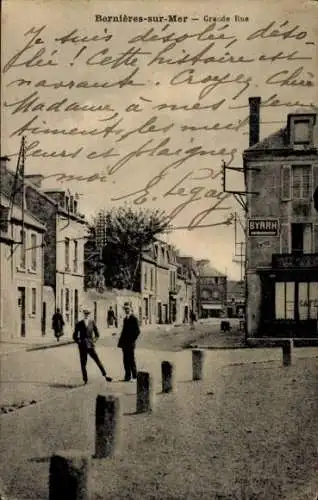 Bernières-sur-Mer — Grande Rue
Je suis désolée, déso,
lée ! Cette histoire est
navrante. Croyez chère
Madame à mes sen
timents les meil
leurs et plaignez
moi.
E. Legay
BYRRH
CAFÉ